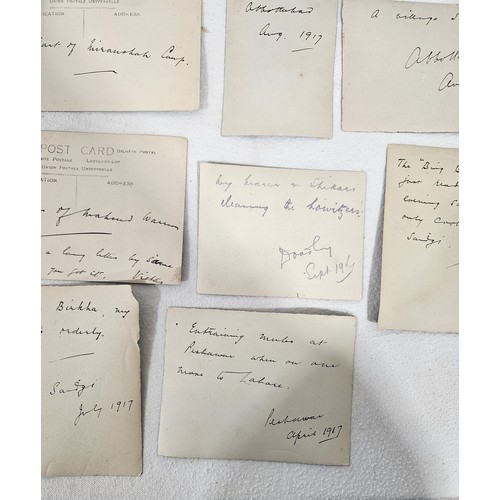 UNION POSTALE UNIVERSELLE
ADDRESS
of Miranshah Camp.
Abbottabad
Aug. 1917
A village
Abbotta
POST CARD
UNION POSTALE UNIVERSELLE
ADDRESS
of Mahsud
a long letter by same
you got it.
My bearer & Shikari
cleaning the howitzers!
Sept 1917
The "Bing B
just read
evening
only
Sandgi
Birkha, my
orderly.
Sandgi
July 1917
Entraining mules at
Peshawar when on our
move to Lahore.
Peshawar
April 1917